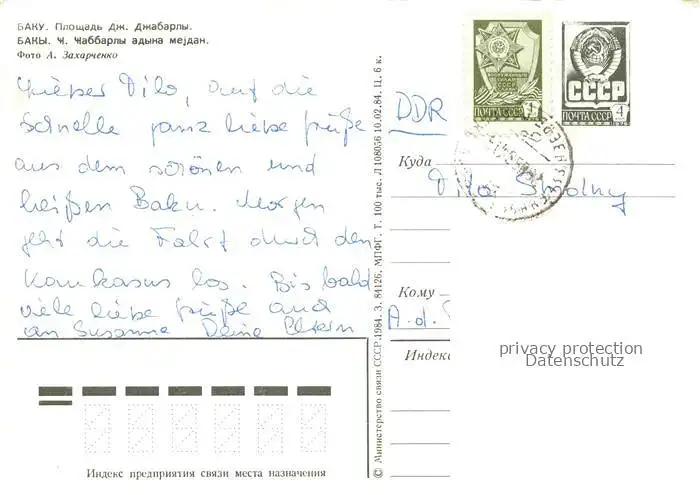 БАКУ. Площадь Дж. Джабарлы.
БАКЫ. Ч. Чаббарлы адына мејдан.
Фото А. Захарченко
Lieber Tilo, auf die
Schnelle ganz liebe Grüße
aus dem schönen und
heißen Baku. Morgen
geht die Fahrt durch den
Kaukasus los. Bis bald
viele liebe Grüße auch
an Susanne Deine Eltern
Индекс предприятия связи места назначения
© Министерство связи СССР. 1984. З. 84126. МПФГ. Т. 100 тыс. Л 108056 10.02.84. Ц. 6 к.
DDR
ПОЧТА СССР 1
СССР
ПОЧТА СССР 4
Куда
Tilo
Кому
A. d.
Индекс
privacy protection
Datenschutz